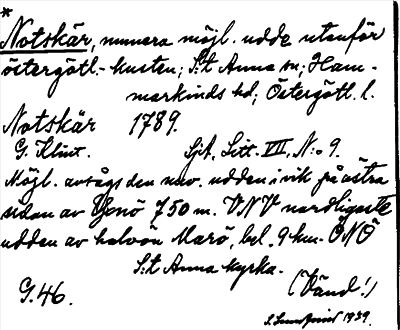 *
Notskär, numera möjl. udde utanför
östergötl.-kusten; S:t Anna sn; Ham-
markinds hd; Östergötl. l.
Notskär 1789.
G. Klint. Sjöf. Litt. VIII, N:o 9.
Möjl. avsågs den nuv. udden i vik på östra
sidan av Yxnö 750 m. VNV nordligaste
udden av halvön Marö, bel. 9 km. ÖNÖ
S:t Anna kyrka.
G.46. (Vänd!)
1939.